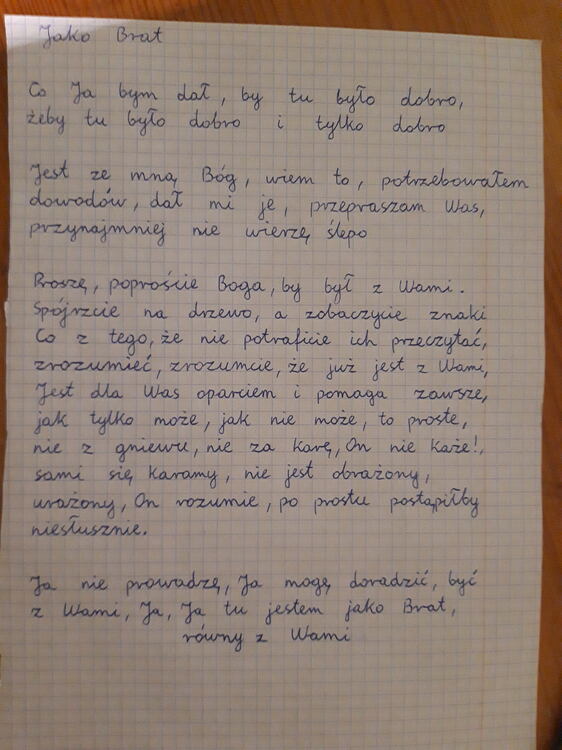 Jako Brat
Co Ja bym dał, by tu było dobro,
żeby tu było dobro i tylko dobro
Jest ze mną Bóg, wiem to, potrzebowałem
dowodów, dał mi je, przepraszam Was,
przynajmniej nie wierzę ślepo
Proszę, poproście Boga, by był z Wami.
Spójrzcie na drzewo, a zobaczycie znaki
Co z tego, że nie potraficie ich przeczytać,
zrozumieć, zrozumcie, że już jest z Wami,
Jest dla Was oparciem i pomaga zawsze,
jak tylko może, jak nie może, to proste,
nie z gniewu, nie za karę, On nie każe!,
sami się karamy, nie jest obrażony,
urażony, On rozumie, po prostu postąpiłby
niesłusznie.
Ja nie prowadzę, Ja mogę doradzić, być
z Wami, Ja, Ja tu jestem jako Brat,
równy z Wami